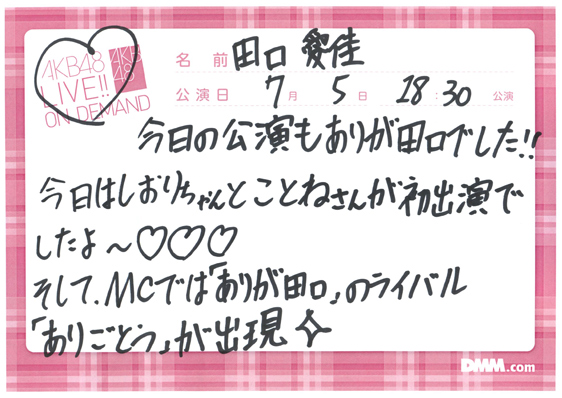 AKB48
LIVE!!
ON DEMAND
AKB
48
名 前 田口 愛佳
公演日 7月 5日 18:30 公演
今日の公演もありが田口でした!!
今日はしおりちゃんとことねさんが初出演で
したよ〜♡♡♡
そして、MCでは「ありが田口」のライバル
「ありごとう」が出現✧
DMM.com